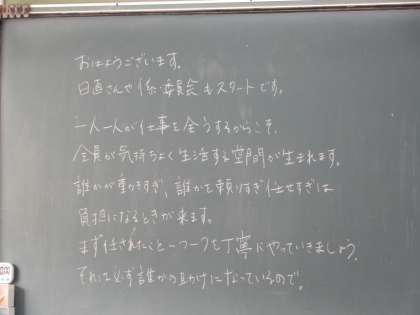 おはようございます。
日直さんや係、委員会もスタートです。
一人一人が仕事を全うするからこそ、
全員が気持ちよく生活する空間が生まれます。
誰かが動きすぎ、誰かを頼りすぎ任せすぎは
負担になるときが来ます。
まず任されたこと一つ一つを丁寧にやっていきましょう。
それは必ず誰かの助けになっているので。